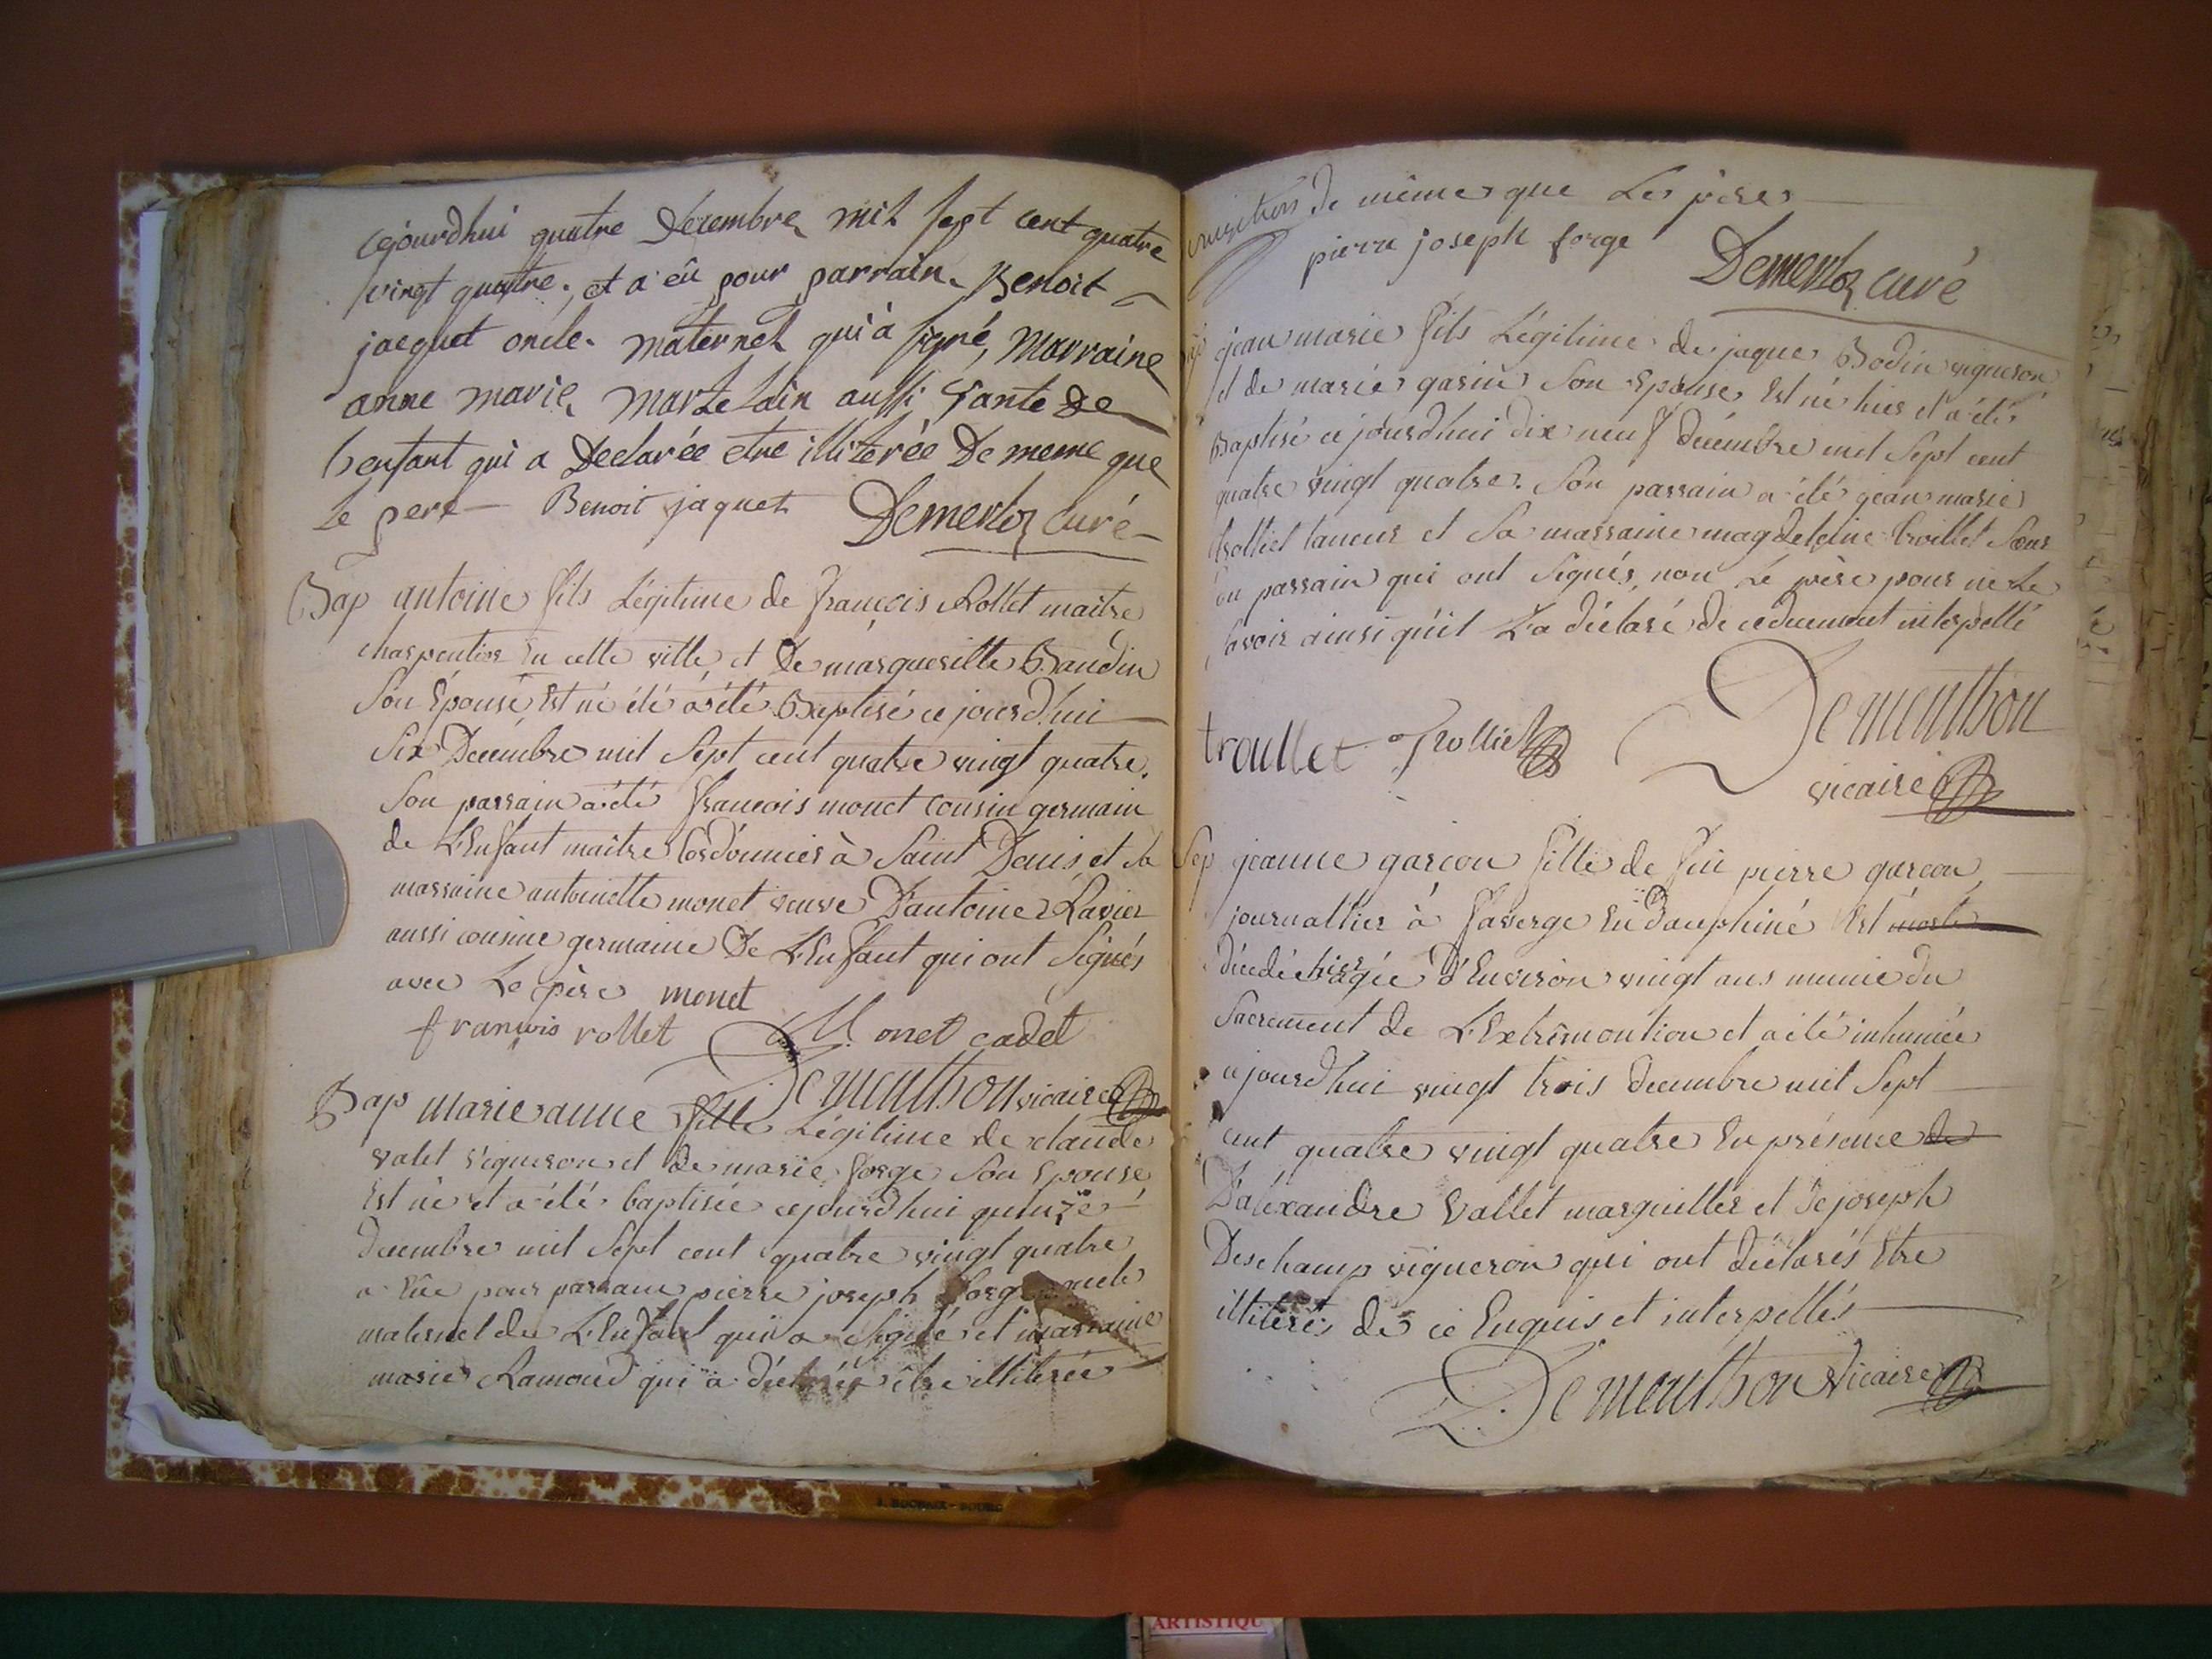 cejourdhui quatre Decembre mil sept cent quatre
vingt quatre. et a éu pour parrain. Benoit
jacquet oncle. maternel qui à signé, Marraine
anne marie martelain aussi tante De
lenfant qui a Declarée etre illiterée De meme que
le pere - Benoit jaquet Demerloz curé -
Bap antoine fils Légitime de François Rollet maitre
charpentier en cette ville et De marguerilte Baudin
Son Epouse Est né été a été Baptisé ce jourd'hui
Six Decembre mil Sept cent quatre vingt quatre.
Son parrain a été François monet cousin germain
de L'Enfant maître Cordonnier à Saint Denis, et sa
marraine antoinette monet veuve D'antoine Ravier
aussi cousine germaine De L'Enfant qui ont Signés
avec Le père monet
françois rollet M. onet cadet
Dementhon vicaire
Bap marie anne fille Légitime de claude
valet vigneron et de marie forge Son Epouse
Est né et a été baptisée cejourd'hui quinze
decembre mil Sept cent quatre vingt quatre
a Eûe pour parrain pierre joseph forge oncle
maternel de L'Enfant qui a signé et marraine
marie Ramoud qui a déclarée être illiterée
de même que Le père
pierre joseph forge Demerloz curé
jean marie fils Légitime de jaque Bodin vigneron
et de marie garin Son Epouse Est né hier et a été
Baptisé ce jourdhui dix neuf decembre mil Sept cent
quatre vingt quatre. Son parrain a été jean marie
trolliet taneur et Sa marraine magdeleine troillet Sœur
du parrain qui ont Signés, non Le père pour ne Le
Savoir ainsi qu'il L'a déclaré De ce duement interpellé
troullet Trolliet Dementhon
vicaire
Sep jeanne garcon fille de feu pierre garcon
journallier à faverge En Dauphiné Est morte
décédé hier agée D'Environ vingt ans munie du
Sacrement de L'Extrêmontion et a été inhumée
cejourdhui vingt trois decembre mil Sept
cent quatre vingt quatre En présence de
D'alexandre Vallet marguillier et De joseph
Deschamp vigneron qui ont déclarés Etre
illiterés de ce Enquis et interpellés
Dementhon vicaire
ARTISTIQU